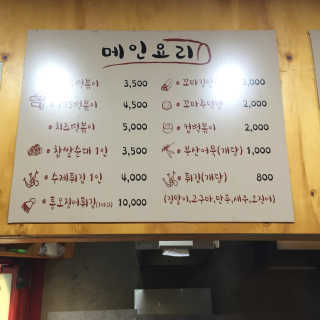 메인요리
떡볶이 3,500
떡볶이 4,500
치즈떡볶이 5,000
찹쌀순대 1인 3,500
수제튀김 1인 4,000
통오징어튀김(1마리) 10,000
꼬마김밥 2,000
꼬마주먹밥 2,000
컵떡볶이 2,000
부산어묵(개당) 1,000
튀김(개당) 800
(김말이,고구마,만두,새우,오징어)